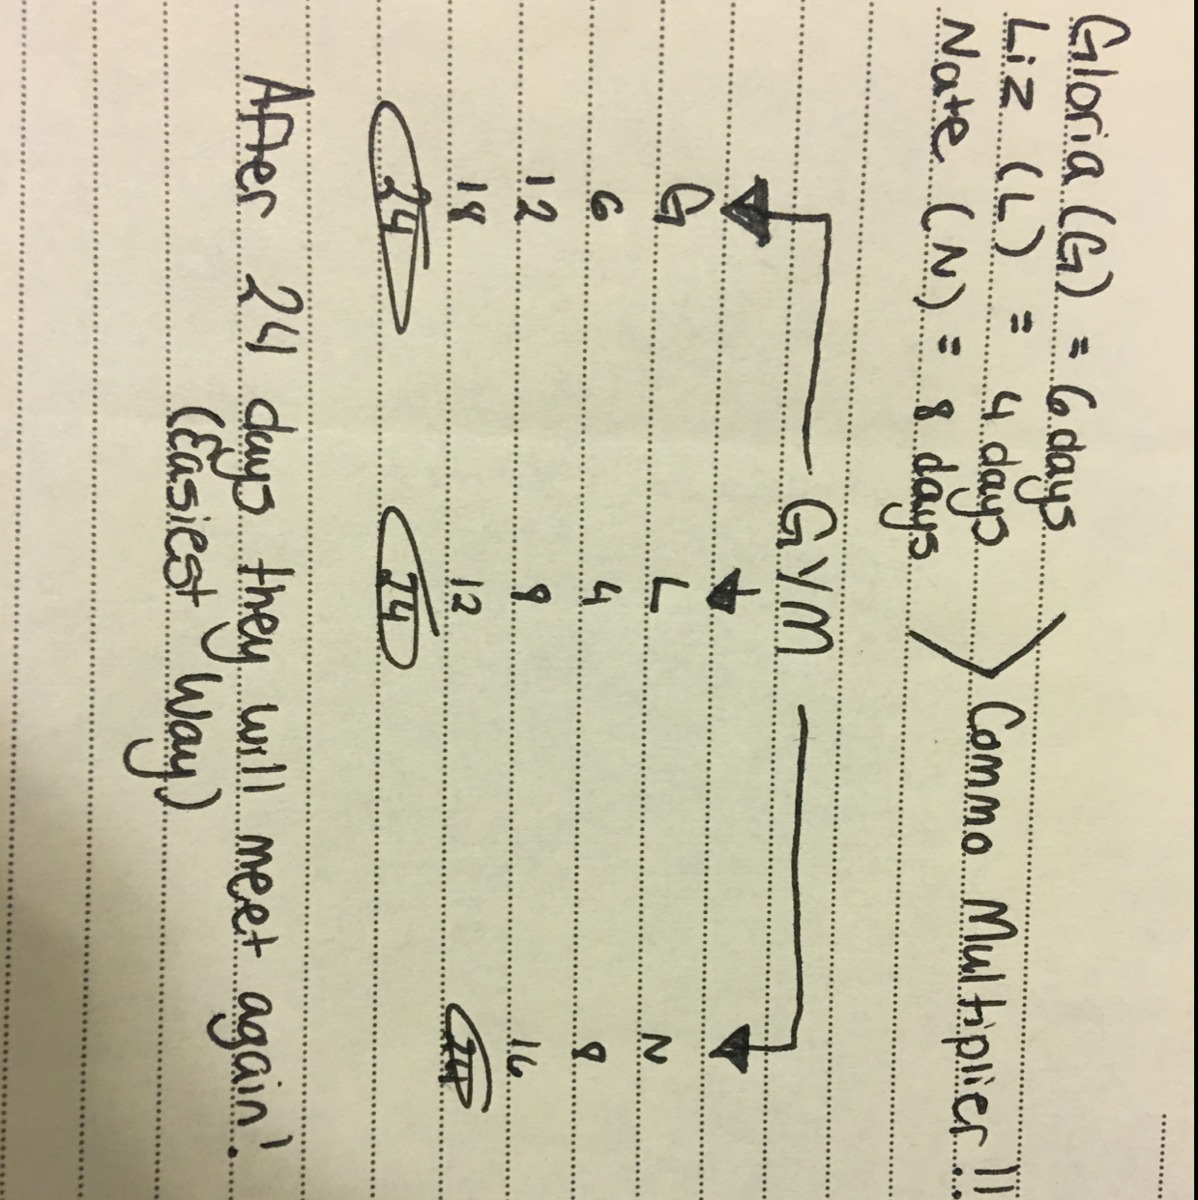 Gloria (G) = 6 days
Liz (L) = 4 days
Nate (N) = 8 days
Commo Multiplier!!
GYM
G L N
6 4 8
12 8 16
18 12 24
24 24
After 24 days they will meet again!
(Easiest Way)